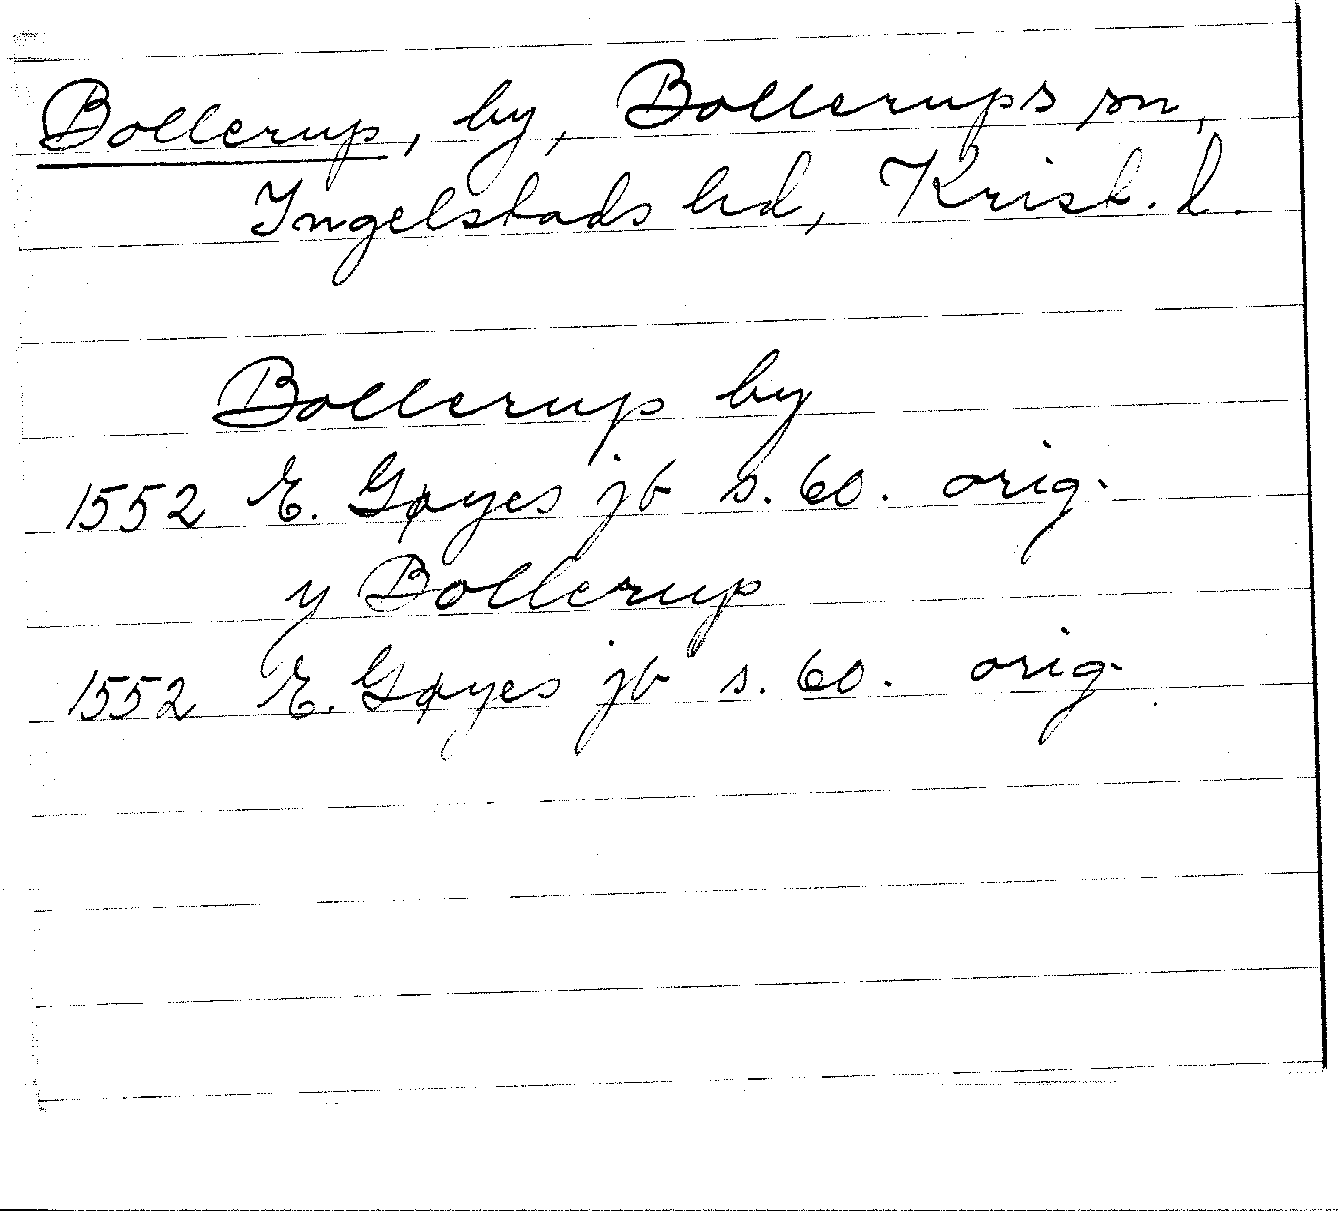 Bollerup, by, Bollerups sn,
Ingelstads hd, Krist. l.
Bollerup by
1552 E. Gøyes jb s. 60. orig.
y Bollerup
1552 E. Gøyes jb s. 60. orig.